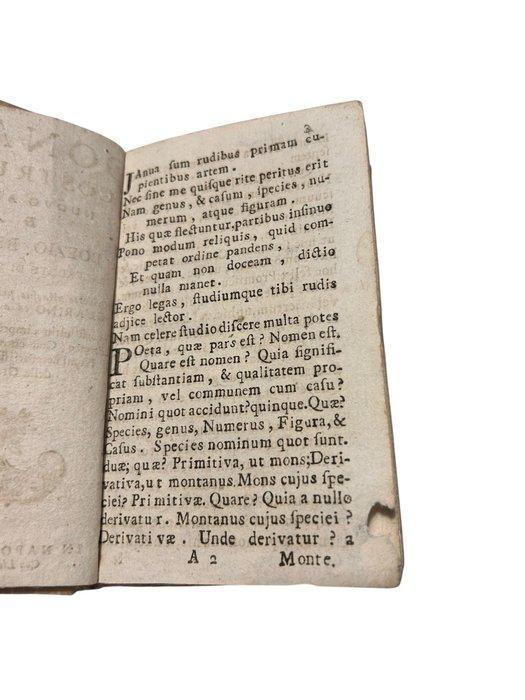 JAnua ſum rudibus primam cu-
pientibus artem.
Nec ſine me quiſque rite peritus erit
Nam genus, & caſum, ſpecies, nu-
merum, atque figuram.
His quæ flectuntur partibus inſinuo
Pono modum reliquis, quid com-
petat ordine pandens,
Et quam non doceam, dictio
nulla manet.
Ergo legas, ſtudiumque tibi rudis
adjice lector.
Nam celere ſtudio diſcere multa potes
POeta, quæ pars eſt? Nomen eſt.
Quare eſt nomen? Quia ſignifi-
cat ſubſtantiam, & qualitatem pro-
priam, vel communem cum caſu?
Nomini quot accidunt? quinque. Quæ?
Species, genus, Numerus, Figura, &
Caſus. Species nominum quot ſunt.
duæ; quæ? Primitiva, ut mons; Deri-
vativa, ut montanus. Mons cujus ſpe-
ciei? Primitivæ. Quare? Quia a nullo
derivatur. Montanus cujus ſpeciei?
Derivativæ. Unde derivatur? a
A 2 Monte.
IN NAPO